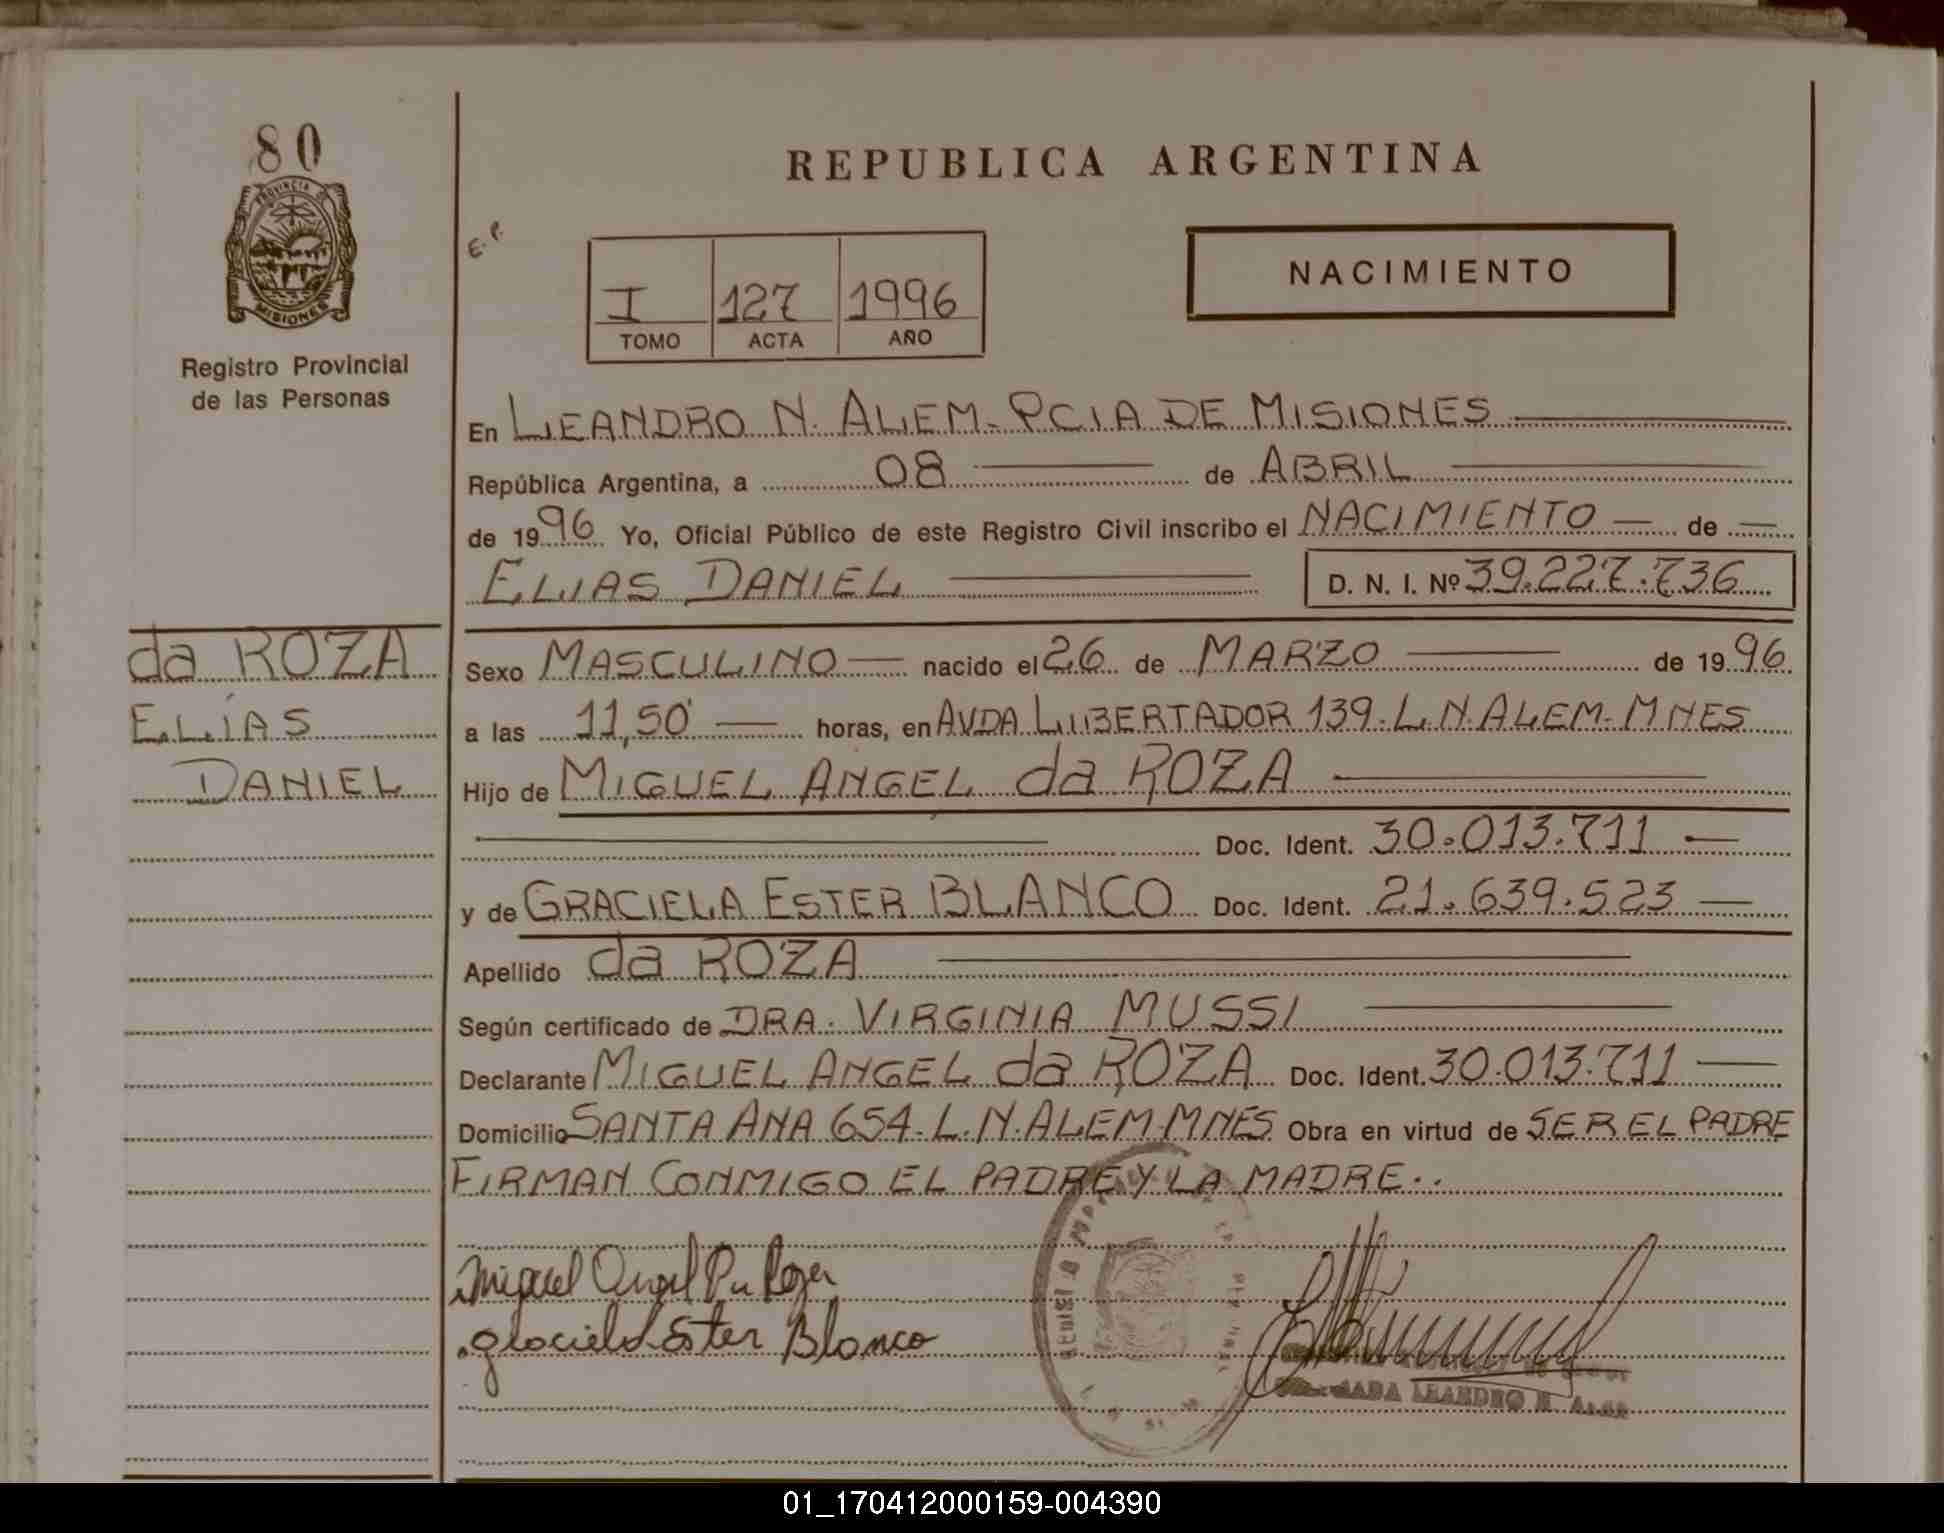 80
PROVINCIA DE
MISIONES
Registro Provincial
de las Personas
da ROZA
ELÍAS
DANIEL
REPUBLICA ARGENTINA
E.P.
I 127 1996
TOMO ACTA AÑO
NACIMIENTO
En LEANDRO N. ALEM - PCIA DE MISIONES
República Argentina, a 08 de ABRIL
de 1996 Yo, Oficial Público de este Registro Civil inscribo el NACIMIENTO — de —
ELIAS DANIEL D. N. I. Nº 39.227.736
Sexo MASCULINO — nacido el 26 de MARZO de 1996
a las 11,50 — horas, en AVDA LIBERTADOR 139. L. N. ALEM - MNES
Hijo de MIGUEL ANGEL da ROZA
Doc. Ident. 30.013.711 —
y de GRACIELA ESTER BLANCO Doc. Ident. 21.639.523 —
Apellido da ROZA
Según certificado de DRA. VIRGINIA MUSSI
Declarante MIGUEL ANGEL da ROZA Doc. Ident. 30.013.711 —
Domicilio SANTA ANA 654 - L. N. ALEM - MNES Obra en virtud de SER EL PADRE
FIRMAN CONMIGO EL PADRE Y LA MADRE..
Miguel Angel
Graciela Ester Blanco
LEANDRO N. ALEM
01_170412000159-004390